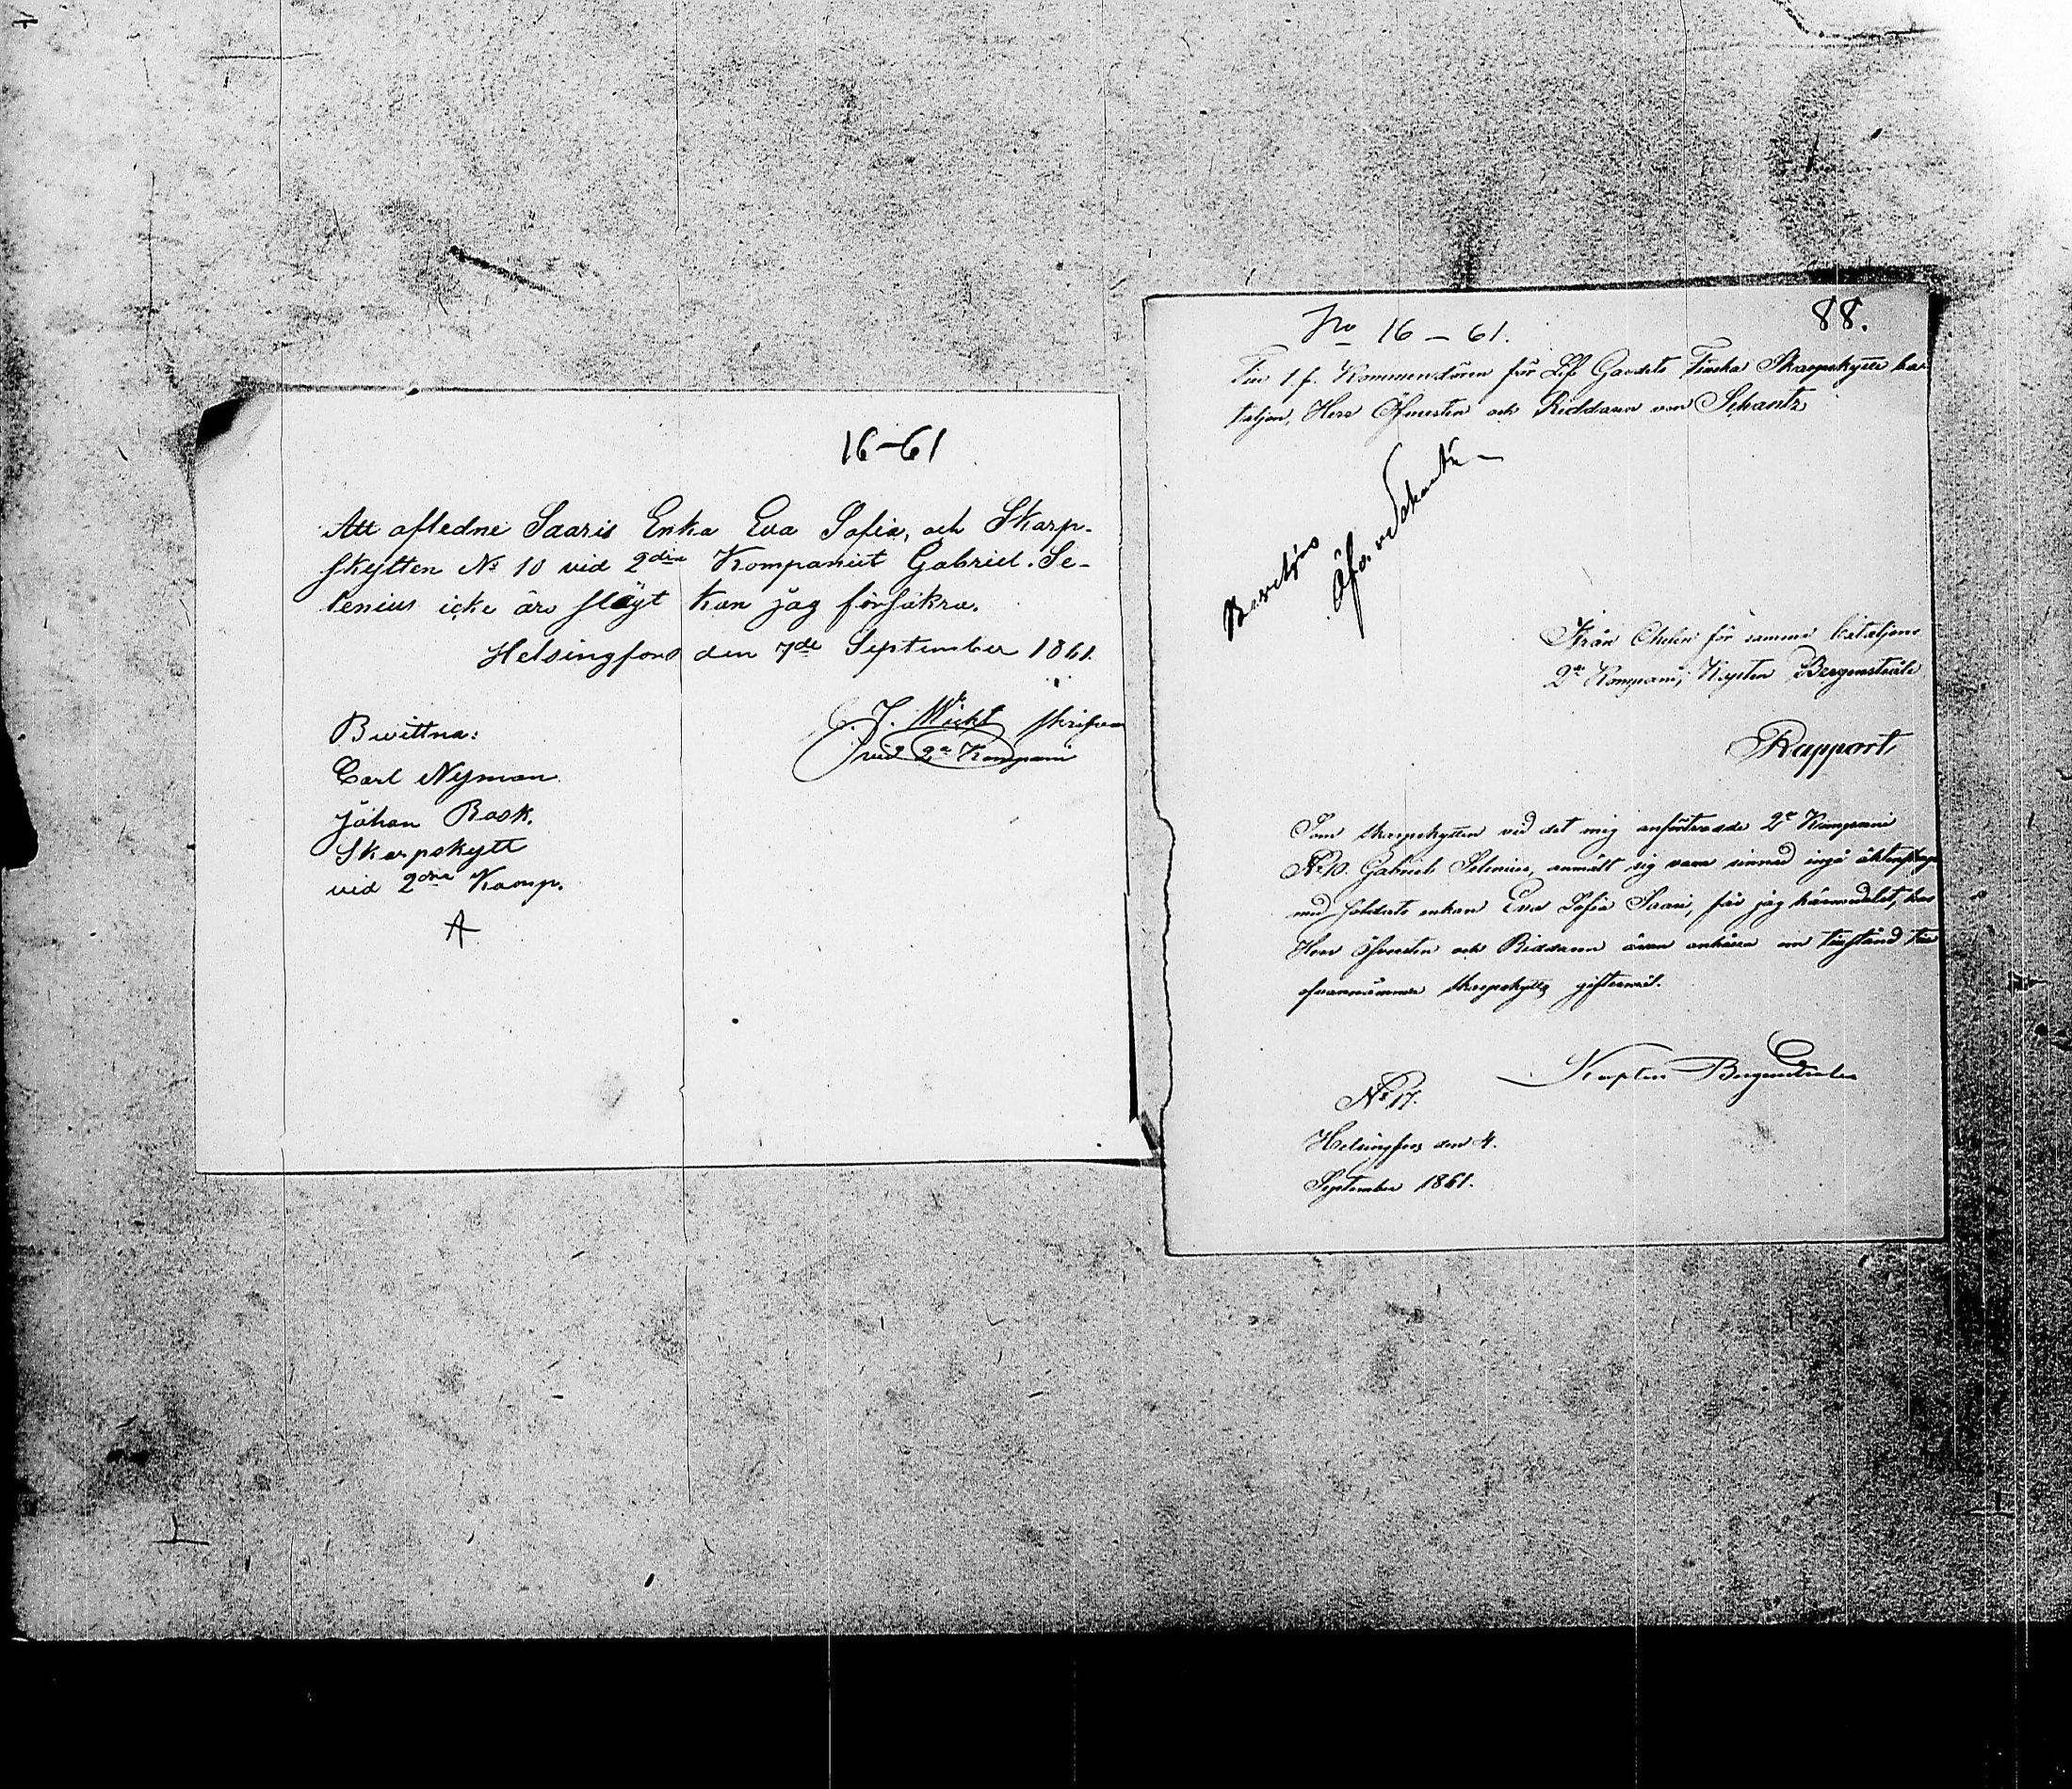 16-61
Att afledne Saaris Enka Eva Sofia, och Skarp-
skytten No 10 vid 2dra Kompaniet Gabriel. Se-
lenius icke äro slägt kan jag försäkra.
Helsingfors den 7de September 1861.
J. Wickt
vid 2a Kompani
Bwittna:
Carl Nyman
Johan Bask.
Skarpskytt
vid 2dra Komp.
No 16-61.
88.
Till t. f. Kommendören för Lif Gardets Finska Skarpskytte ba-
taljon, Herr Öfversten och Riddaren von Schantz
Beviljas
Öfv. v Schantz
Från Chefen för samma bataljons
2a Kompani, Kapten Bergenstråle
Rapport
Som skarpskytten vid det mig anförtrodde 2a Kompani
No 10. Gabriel Selenius, anmält sig vara sinnad ingå äktenskap
med soldats enkan Eva Sofia Saari, får jag härmedelst, hos
Herr Öfversten och Riddaren äran anhålla om tillstånd till
ofvannämnde skarpskytts giftermål.
Kapten Bergenstråle
No 17.
Helsingfors den 4.
September 1861.